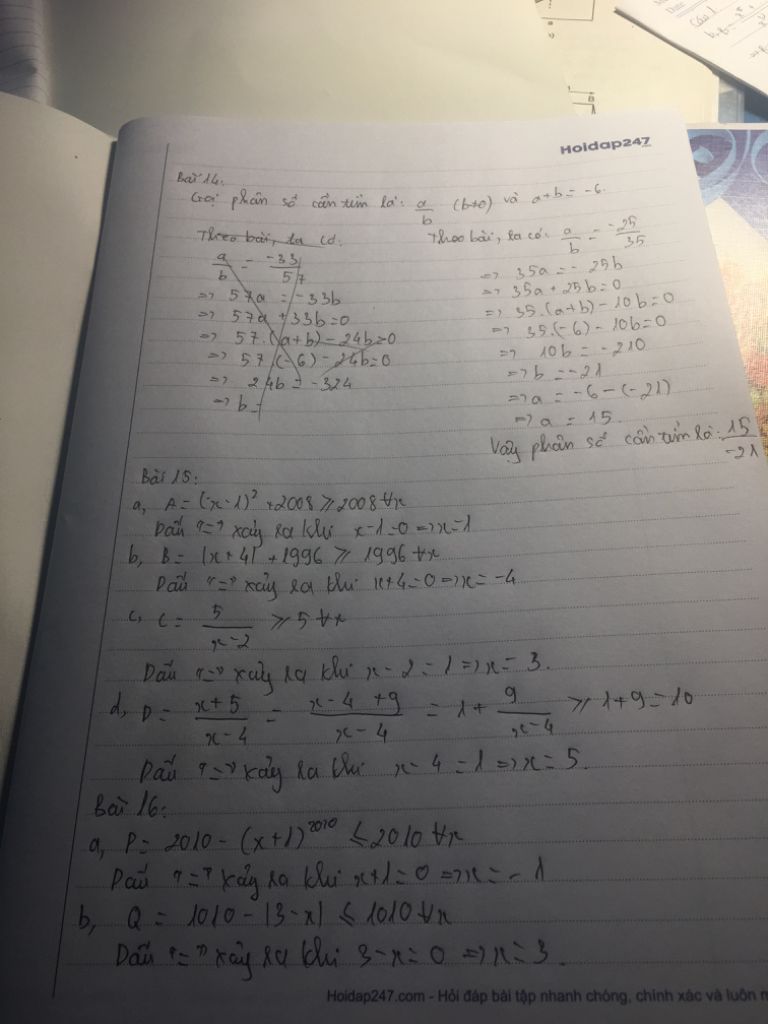 Hoidap247
Bài 14:
Gọi phân số cần tìm là: a/b (b≠0) và a+b = -6.
Theo bài, ta có:
a/b = -33/57
=> 57a = -33b
=> 57a + 33b=0
=> 57.(a+b) - 24b=0
=> 57(-6) - 24b=0
=> 24b = -324
=> b =
Theo bài, ta có: a/b = -25/35
=> 35a = - 25b
=> 35a + 25b=0
=> 35.(a+b) - 10b=0
=> 35.(-6) - 10b=0
=> 10b = -210
=> b = -21
=> a = -6 - (-21)
=> a = 15.
Vậy phân số cần tìm là: 15/-21
Bài 15:
a, A = (x-1)² + 2008 ≥ 2008 ∀x
Dấu "=" xảy ra khi x-1=0 => x=1
b, B = |x+4| + 1996 ≥ 1996 ∀x
Dấu "=" xảy ra khi x+4=0 => x= -4
c, C = 5/x-2 ≥ 5 ∀x
Dấu "=" xảy ra khi x - 2 = 1 => x = 3.
d, D = x+5/x-4 = x-4+9/x-4 = 1 + 9/x-4 ≥ 1+9=10
Dấu "=" xảy ra khi x-4=1 => x=5.
Bài 16:
a, P = 2010 - (x+1)²⁰¹⁰ ≤ 2010 ∀x
Dấu "=" xảy ra khi x+1=0 => x = -1
b, Q = 1010 - |3-x| ≤ 1010 ∀x
Dấu "=" xảy ra khi 3-x=0 => x=3.
Hoidap247.com - Hỏi đáp bài tập nhanh chóng, chính xác và luôn